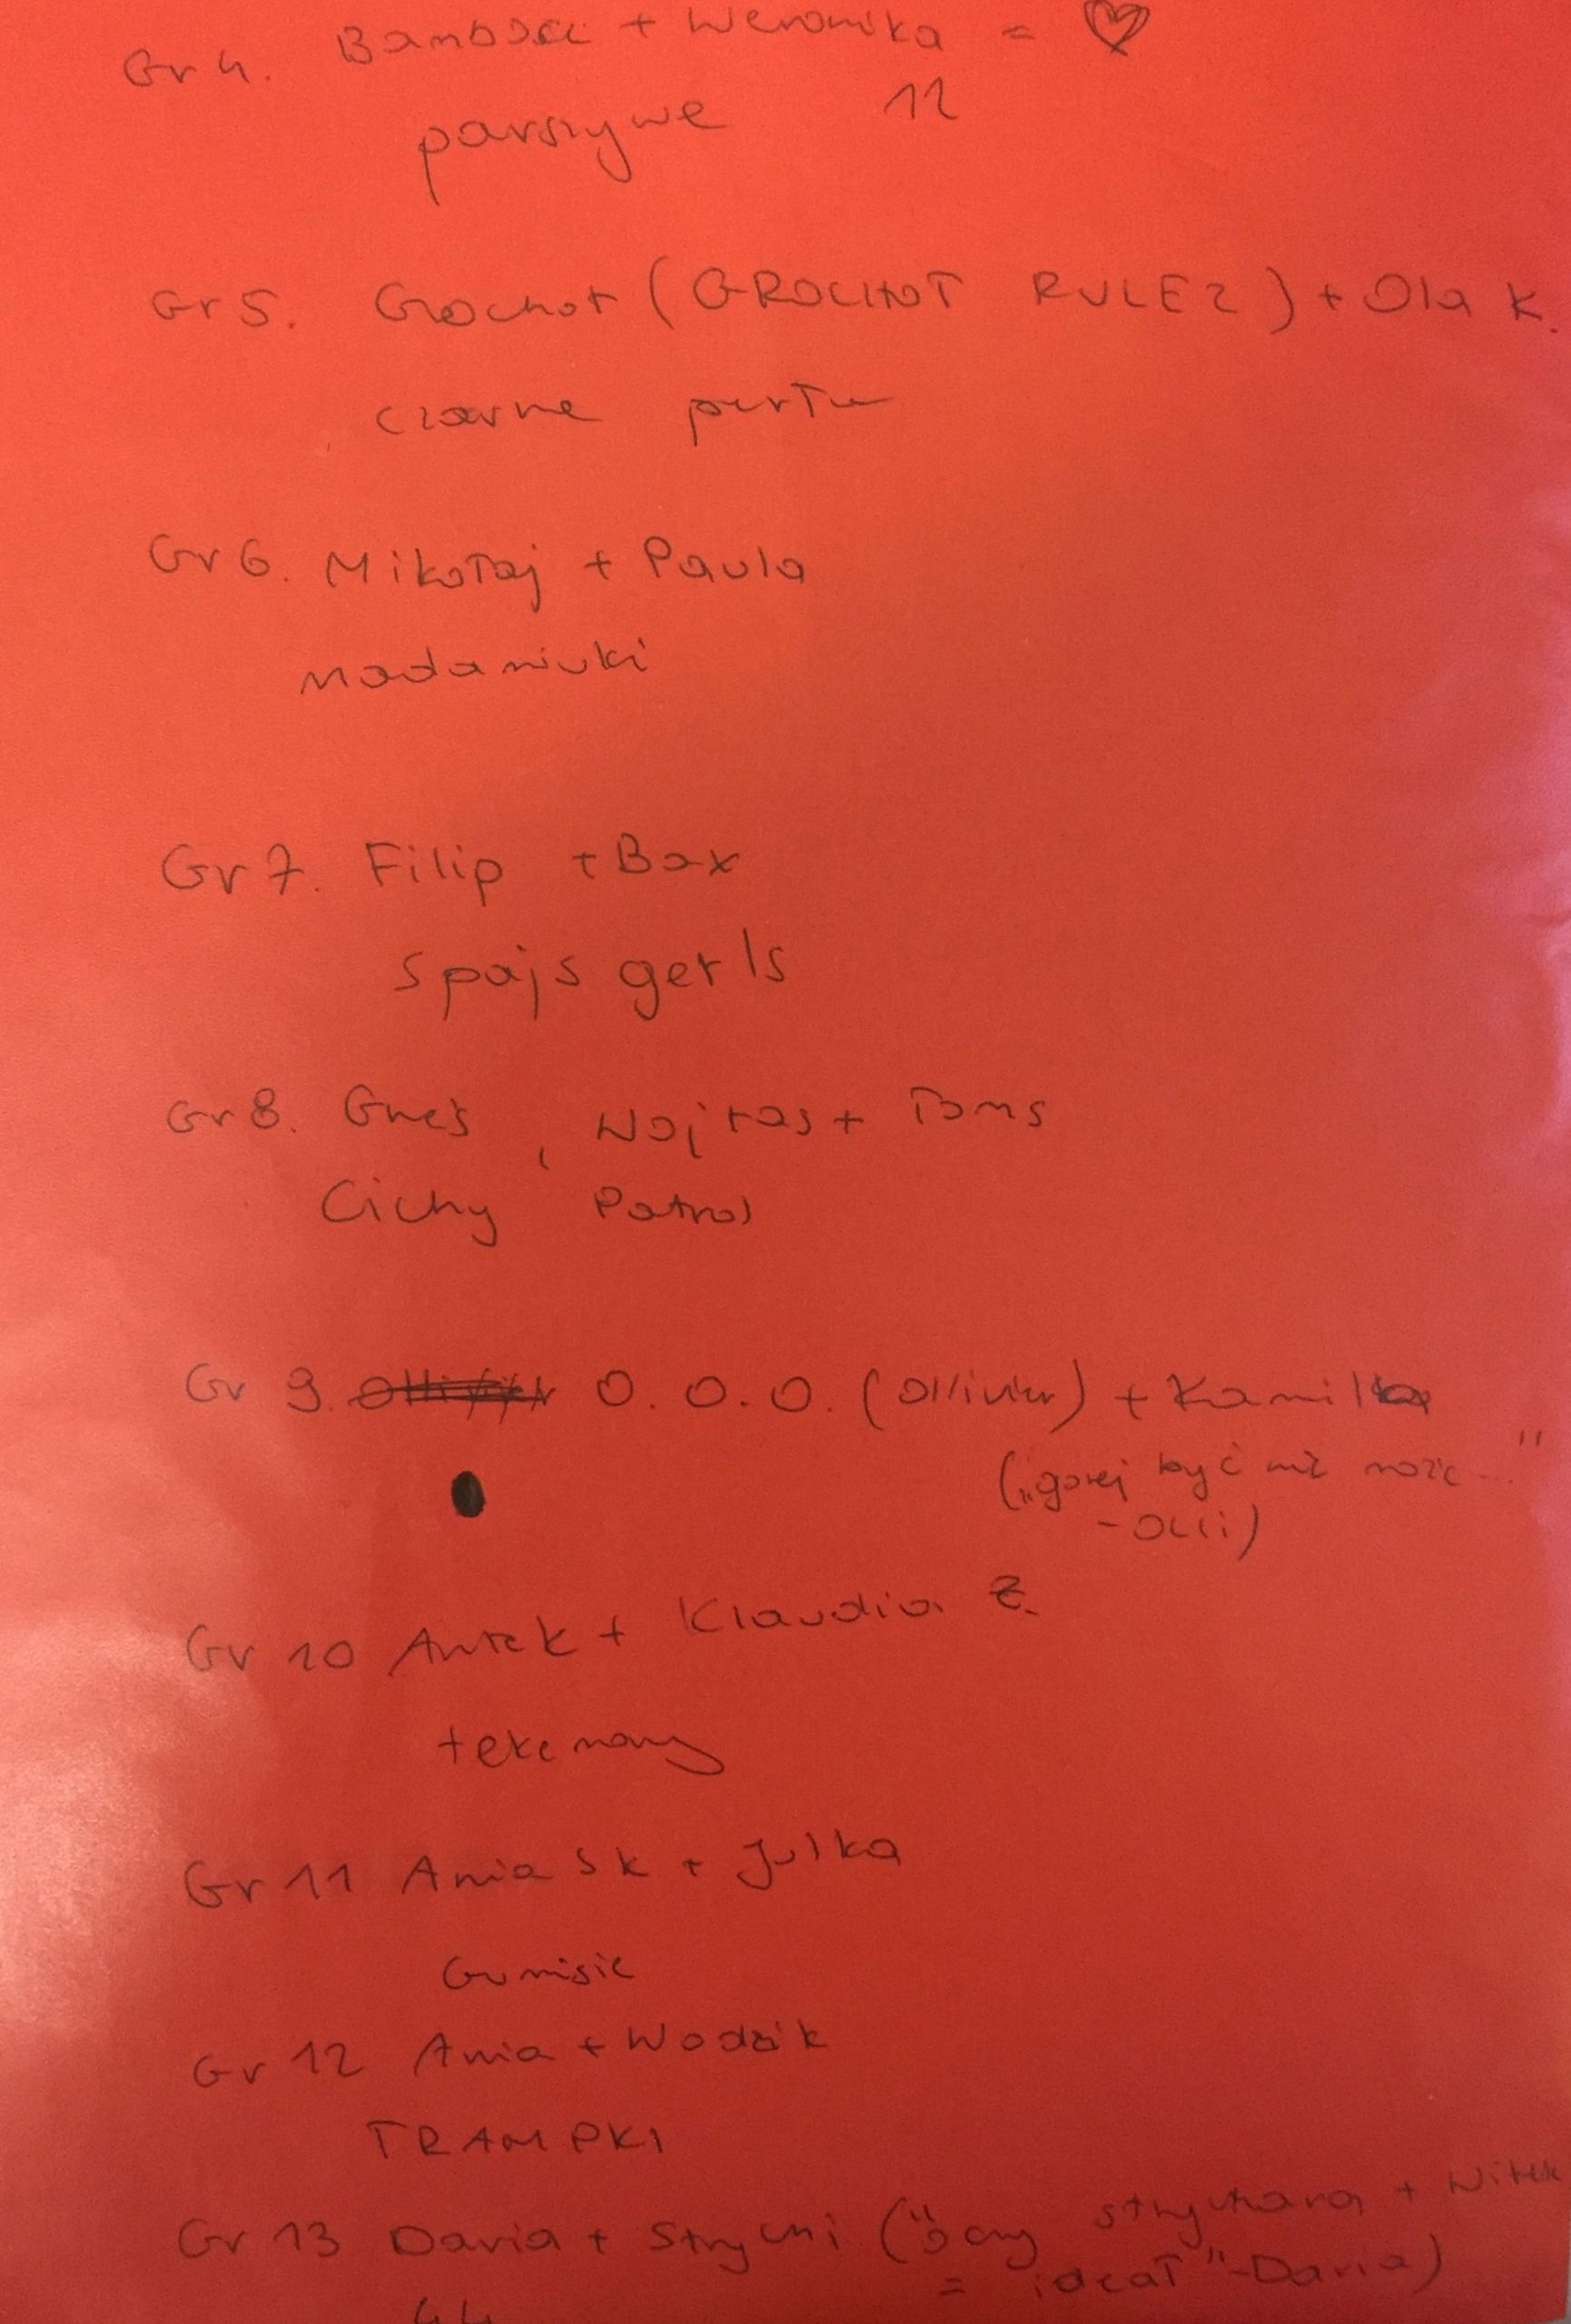 Gr 4. Bambosz + Weronika = ♡
parszywe 12
Gr 5. Grochot (GROCHOT RULEZ) + Ola K.
czarne perły
Gr 6. Mikołaj + Paula
madaniuki
Gr 7. Filip + Bax
spajs gerls
Gr 8. Gneś, Wojtas + Toms
Cichy Patrol
Gr 9. O. O. O. (Ollivier) + Kamil
("gorzej być nie może..."
- Olli)
Gr 10 Antek + Klaudia Z.
tekemany
Gr 11 Ania Sk + Julka
Gumisie
Gr 12 Ania + Wodzik
TRAMPKI
Gr 13 Daria + Strychi ("oczy strychara + Witek
= ideał" - Daria)
44